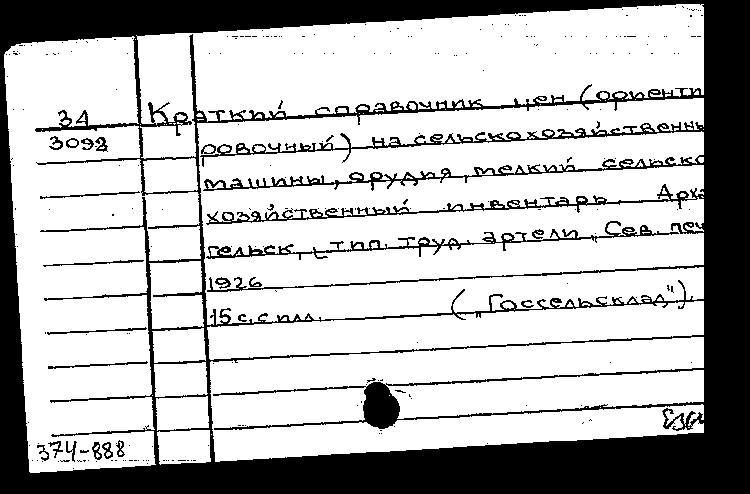 34 Краткий справочник цен (ориенти
3098 ровочный) на сельскохозяйственны
машины, орудия, мелкий сельско
хозяйственный инвентарь. Арха
гельск, [тип. труд. артели „Сев. печ
1926
15 с. с илл. („Госсельсклад").
374-888